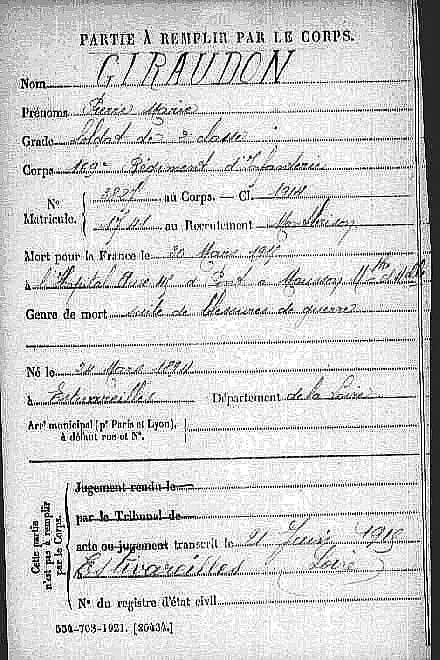 PARTIE À REMPLIR PAR LE CORPS.
Nom GIRAUDON
Prénoms Marie
Grade Soldat de 2e classe
Corps 169e Régiment d'Infanterie
N° Matricule. { 3827 au Corps. — Cl. 1914
au Recrutement Montbrison
Mort pour la France le 30 Mars 1915
à l'Hopital Aux re à Pont à Mousson Mthe et Mlle
Genre de mort suite de blessures de guerre
Né le 24 Mars 1894
à Estivareilles Département de la Loire
Arrt municipal (pr Paris et Lyon), à défaut rue et N°.
Cette partie n'est pas à remplir par le Corps.
Jugement rendu le
par le Tribunal de
acte ou jugement transcrit le 21 Juin 1915
Estivareilles Loire
N° du registre d'état civil
534-708-1921. [26434.]